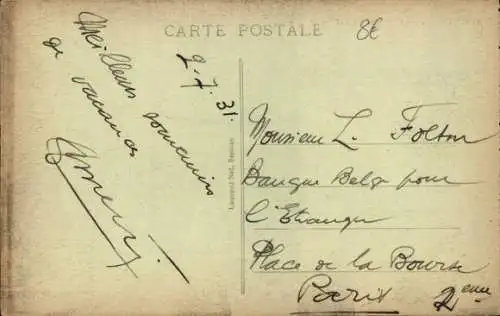 CARTE POSTALE
8€
2.7.31.
Meilleurs souvenirs
de vacances
Monsieur L. Folton
Banque Belge pour
l'Etranger
Place de la Bourse
Paris 2eme